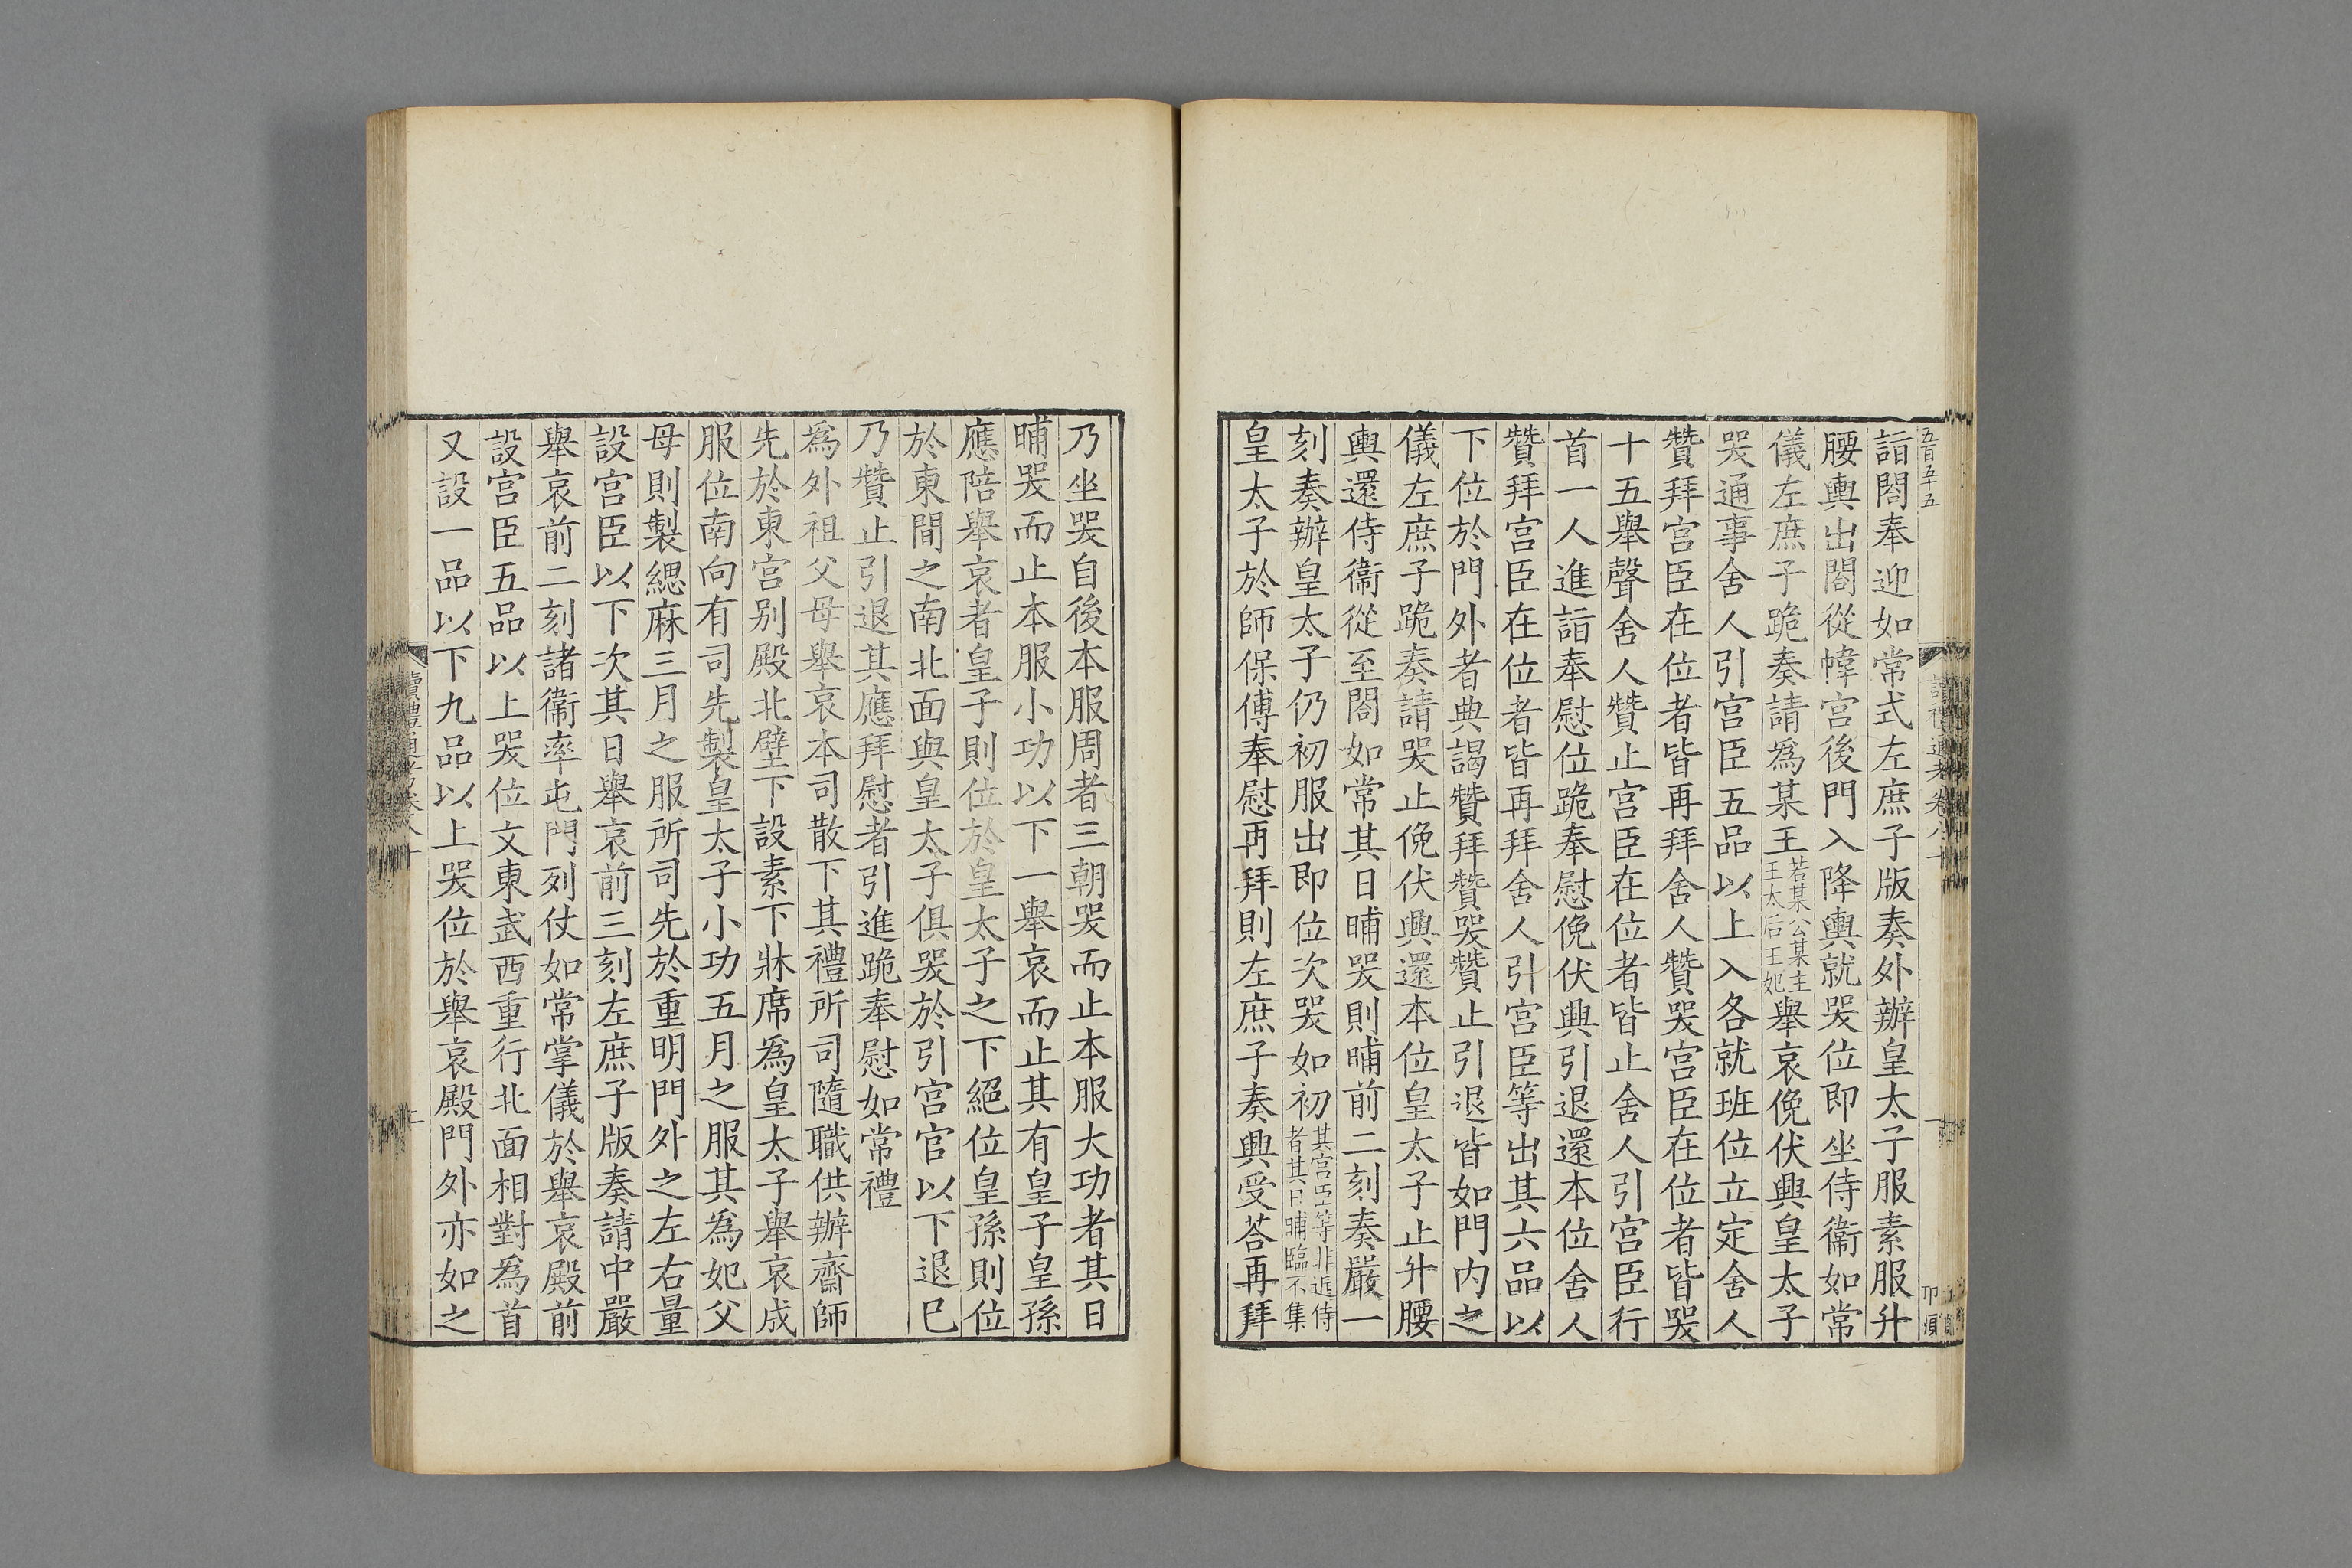 詣閤奉迎如常式左庶子版奏外辦皇太子服素服升
腰輿出閤從幃宮後門入降輿就哭位即坐侍衞如常
儀左庶子跪奏請爲某王若某公某主王太后王妃舉哀俛伏興皇太子
哭通事舍人引宮臣五品以上入各就班位立定舍人
贊拜宮臣在位者皆再拜舍人贊哭宮臣在位者皆哭
十五舉聲舍人贊止宮臣在位者皆止舍人引宮臣行
首一人進詣奉慰位跪奉慰俛伏興引退還本位舍人
贊拜宮臣在位者皆再拜舍人引宮臣等出其六品以
下位於門外者典謁贊拜贊哭贊止引退皆如門内之
儀左庶子跪奏請哭止俛伏興還本位皇太子止升腰
輿還侍衞從至閤如常其日晡哭則晡前二刻奏嚴一
刻奏辦皇太子仍初服出即位次哭如初其宮臣等非近侍者其日晡臨不集
皇太子於師保傅奉慰再拜則左庶子奏興受荅再拜
乃坐哭自後本服周者三朝哭而止本服大功者其日
晡哭而止本服小功以下一舉哀而止其有皇子皇孫
應陪舉哀者皇子則位於皇太子之下絕位皇孫則位
於東間之南北面與皇太子俱哭於引宮官以下退巳
乃贊止引退其應拜慰者引進跪奉慰如常禮
爲外祖父母舉哀本司散下其禮所司隨職供辦齋師
先於東宮别殿北壁下設素下牀席爲皇太子舉哀成
服位南向有司先製皇太子小功五月之服其爲妃父
母則製緦麻三月之服所司先於重明門外之左右量
設宮臣以下次其日舉哀前三刻左庶子版奏請中嚴
舉哀前二刻諸衞率屯門列仗如常掌儀於舉哀殿前
設宮臣五品以上哭位文東武西重行北面相對爲首
又設一品以下九品以上哭位於舉哀殿門外亦如之